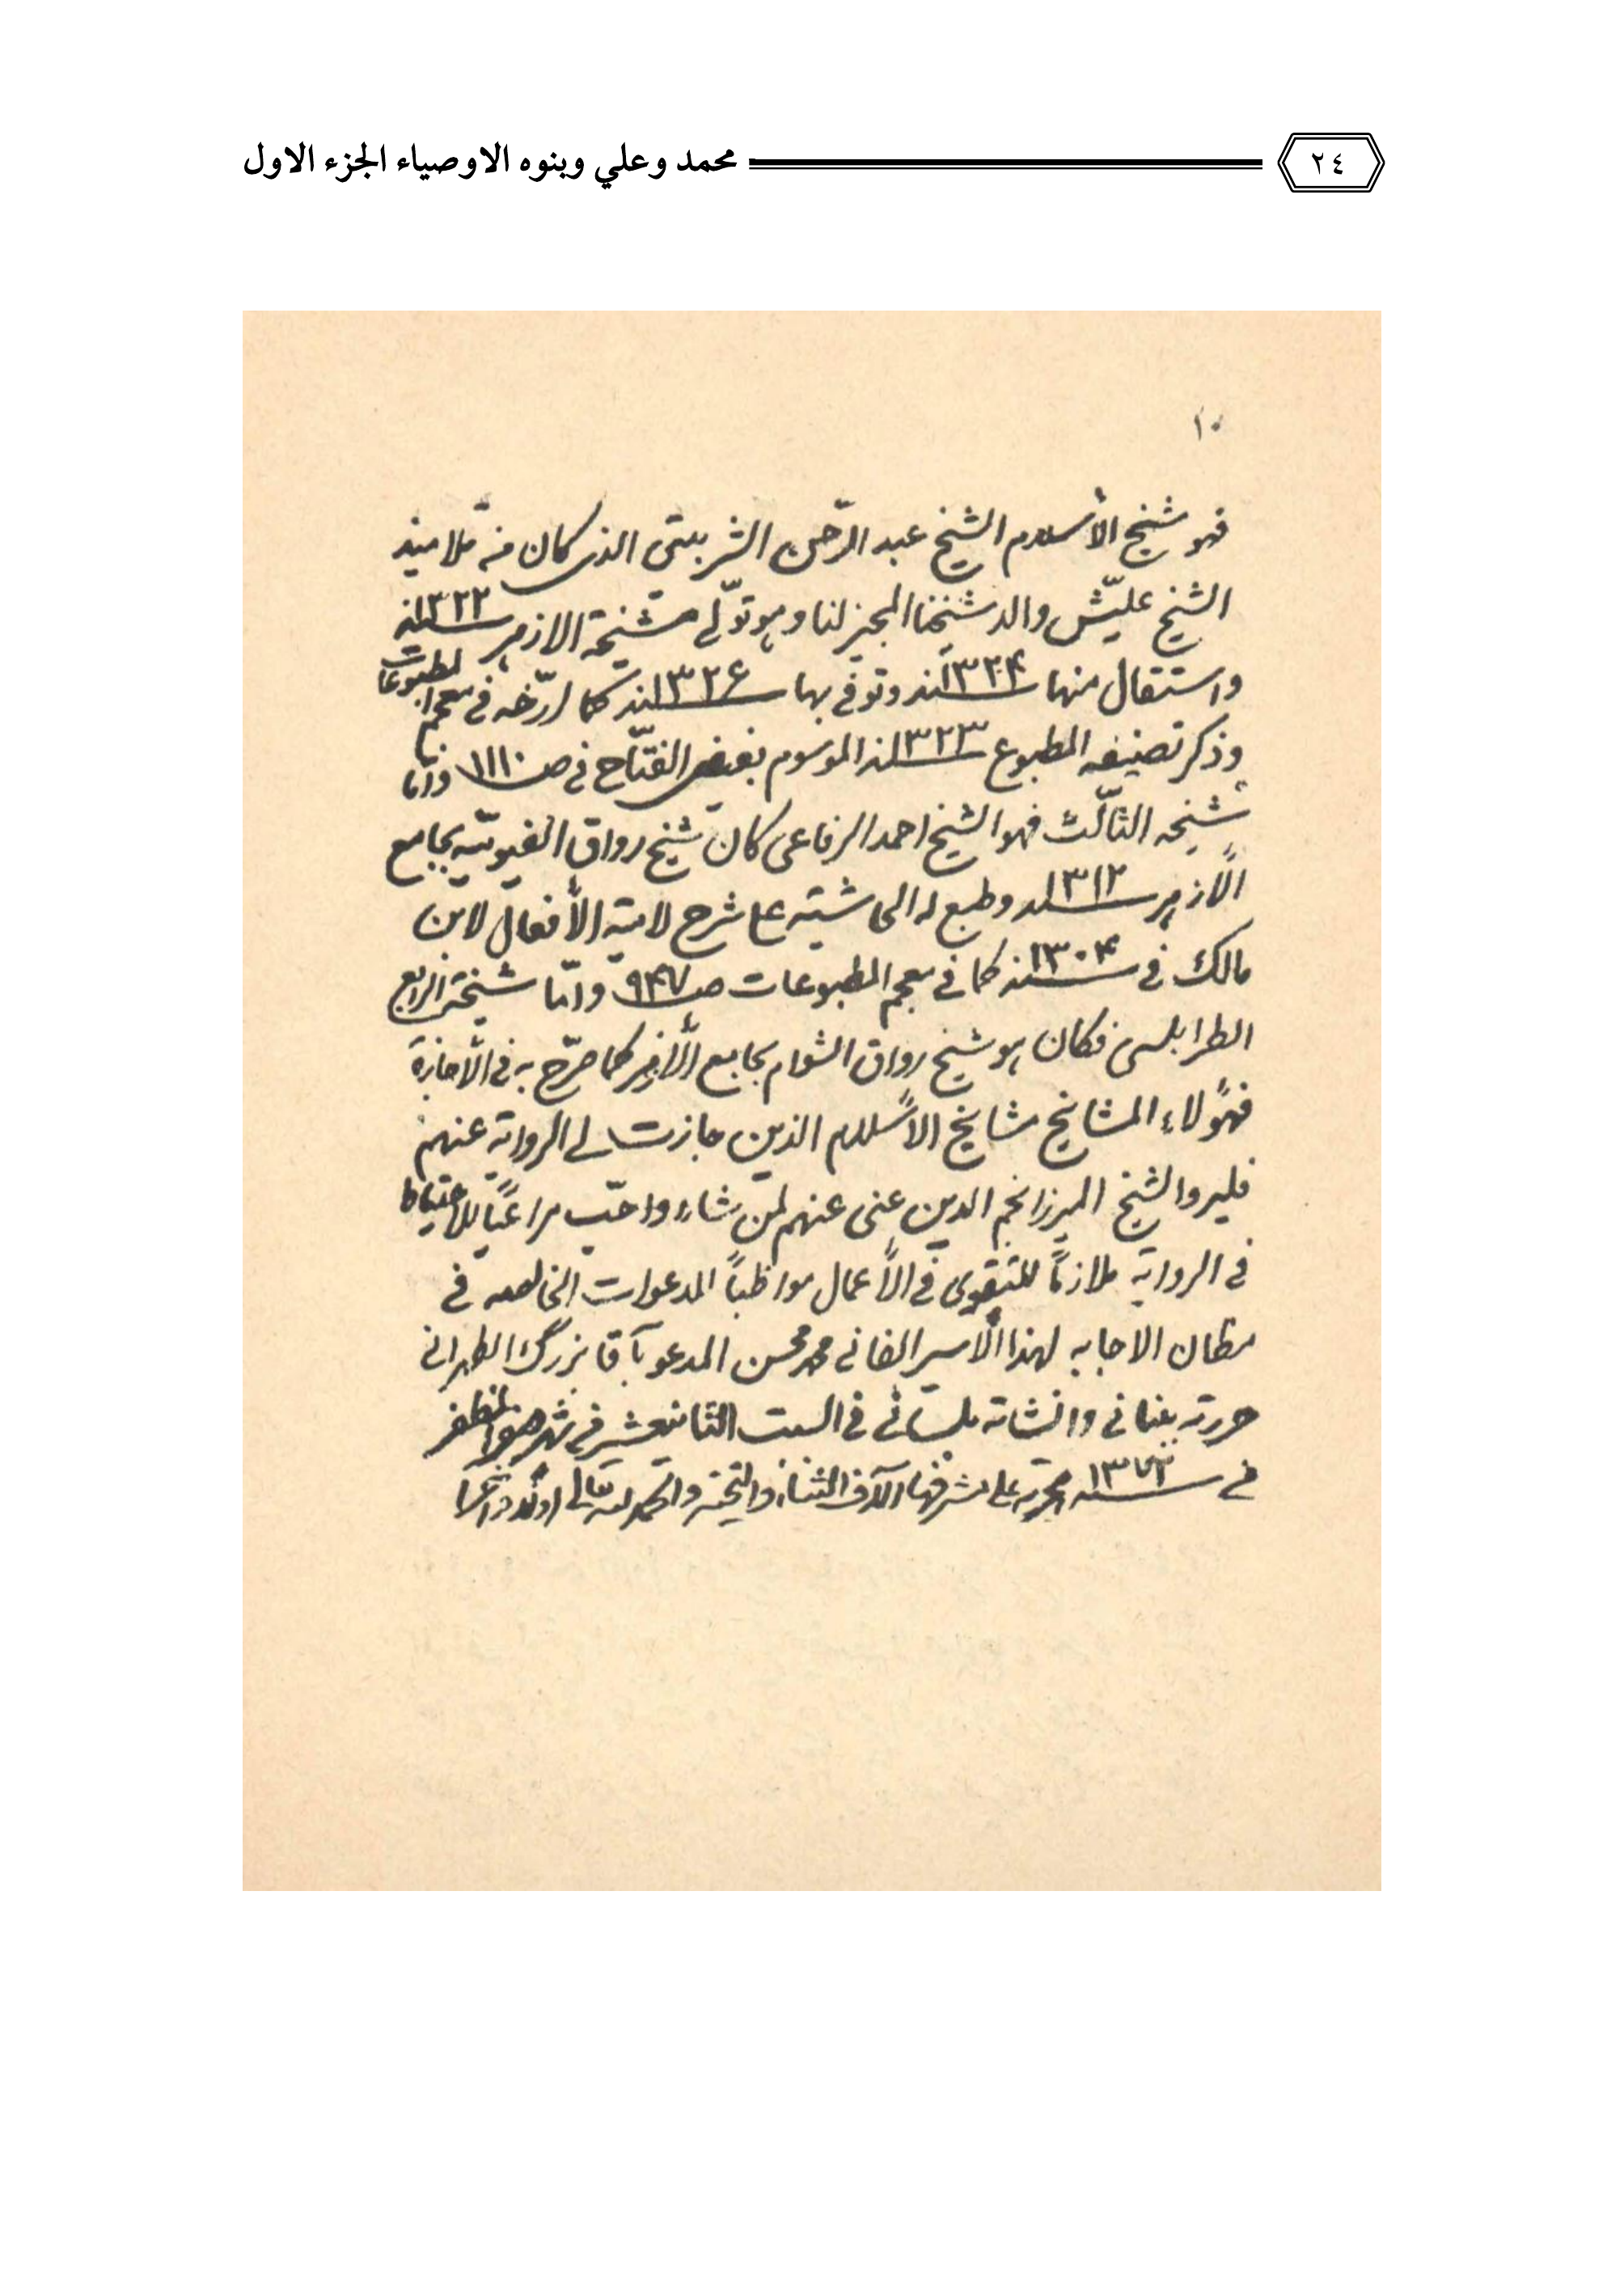 ٢٤
محمد وعلي وبنوه الاوصياء الجزء الاول
١٠
فهو شيخ الأسلام الشيخ عبد الرّحمن الشربيني الذي كان من تلاميذ
الشيخ عليّش والد شيخنا المجيز لنا وهو تولّى مشيخة الازهر ١٣٢٢
واستقال منها ١٣٢٤ وتوفي بها ١٣٢٦ كما ارّخه في معجم المطبوعات
وذكر تصنيفه المطبوع ١٣٢٣ الموسوم بفيض الفتّاح في ص ١١١٠ وامّا
شيخه الثالث فهو الشيخ احمد الرفاعى كان شيخ رواق الفيوميّه بجامع
الأزهر ١٣١٢ وطبع له الحاشيته على شرح لامية الأفعال لابن
مالك في ١٣٠٤ كما في معجم المطبوعات ص ٩٤٧ وامّا شيخه الرابع
الطرابلسى فكان هو شيخ رواق الشوام بجامع الأزهر كما صرّح به في الأجازة
فهؤلاء المشايخ مشايخ الأسلام الذين جازت لي الرواية عنهم
فليرو الشيخ الميرزا نجم الدين عنى عنهم لمن شاء واحبّ مراعياً للاحتياط
في الرواية ملازماً للتقوى في الأعمال مواظباً الدعوات الخالصه في
مظان الاجابه لهذا الأسير الفاني محمد محسن المدعو بآقا بزرگ الطهراني
حررته ببناني وانشاته بلساني في السبت الثاني عشر في شهر صفر المظفر
في ١٣٧٣ هجرية على مشرفها آلاف الثناء والتحية والحمد لله تعالى اولاً وآخراً